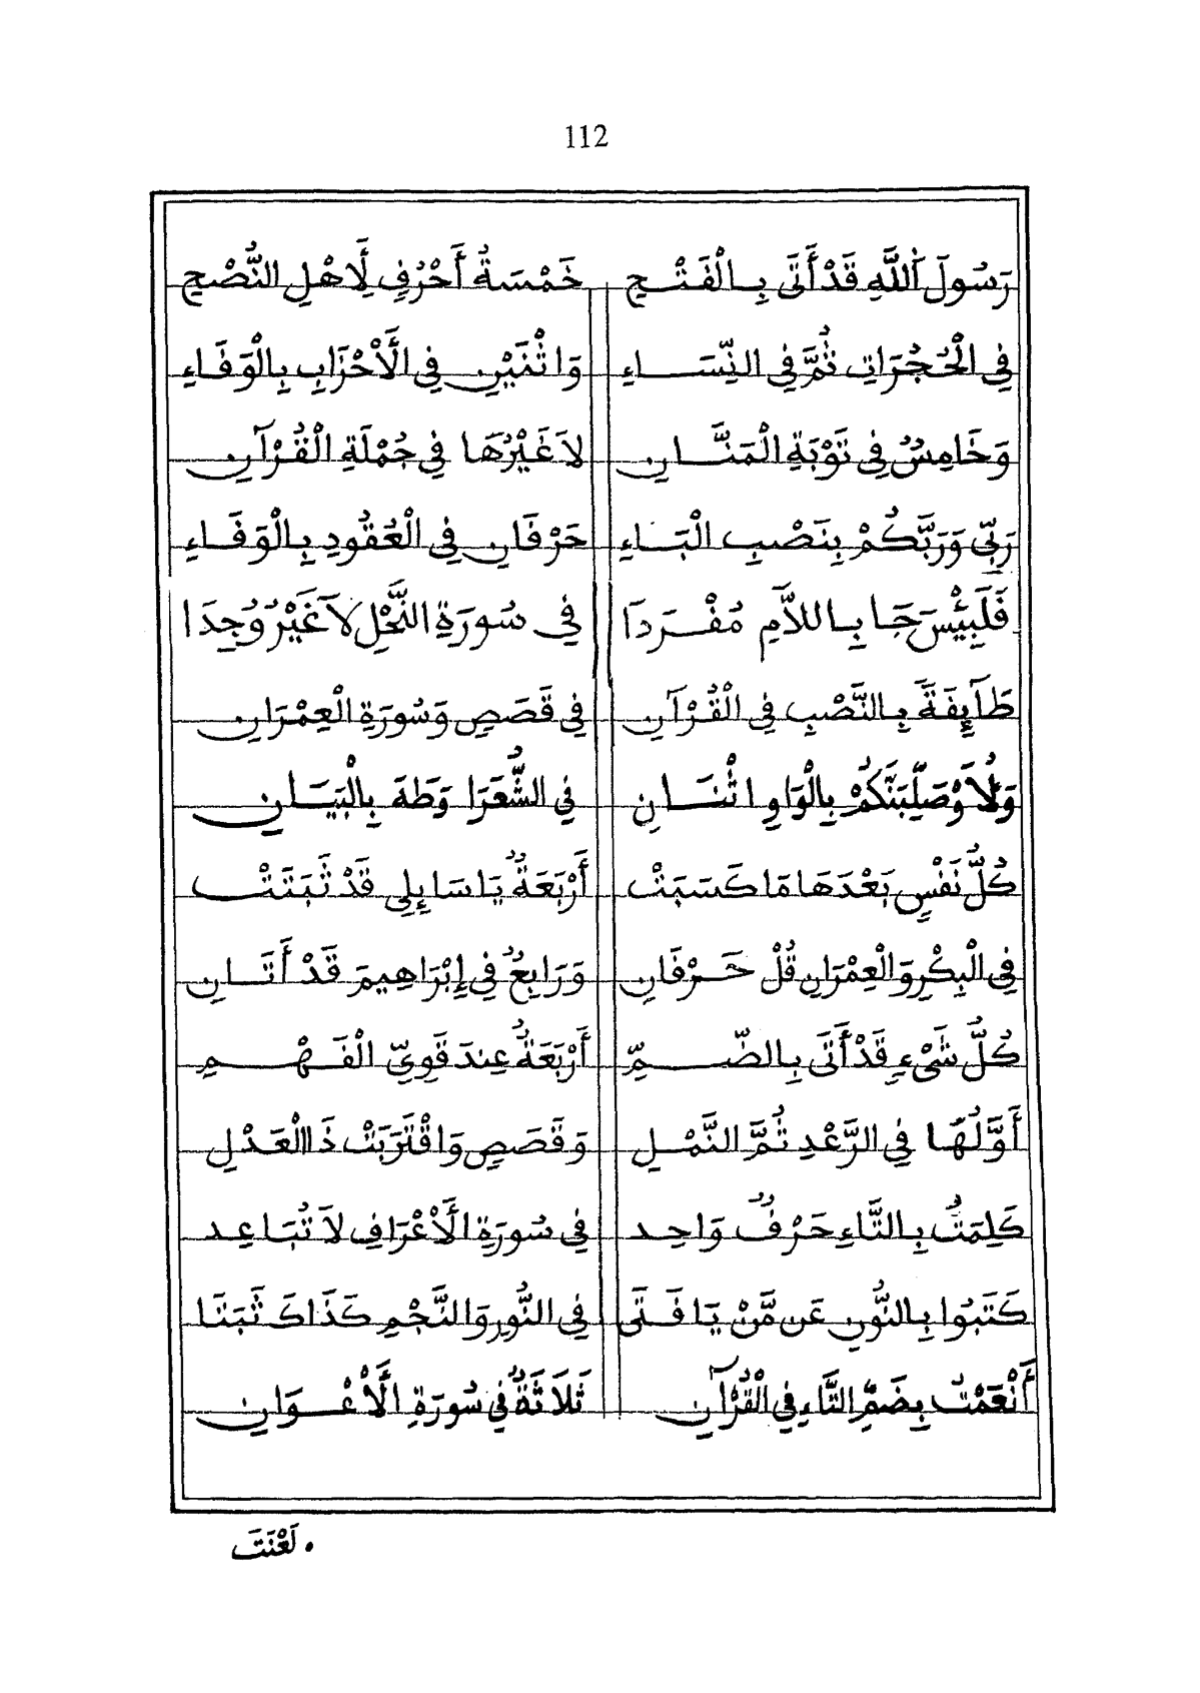 112
رَسُولَ اللَّهِ قَدْ أَتَى بِالْفَتْحِ خَمْسَةُ أَحْرُفٍ لَأَهْلِ النُّصْحِ
فِي الْحُجُرَاتِ ثُمَّ فِي النِّسَاءِ وَاثْنَيْنِ فِي الَأَحْزَابِ بِالْوَفَاءِ
وَخَامِسٌ فِي تَوْبَةِ الْمَنَّانِ لاَ غَيْرُهَا فِي جُمْلَةِ الْقُرْآنِ
رَبِّي وَرَبَّكُمْ بِنَصْبِ الْبَاءِ حَرْفَانِ فِي الْعُقُودِ بِالْوَفَاءِ
فَلَبِئْسَ جَا بِاللاَّمِ مُفْرَدَا فِي سُورَةِ النَّحْلِ لاَ غَيْرُ وُجِدَا
طَآئِفَةً بِالنَّصْبِ فِي الْقُرْآنِ فِي قَصَصٍ وَسُورَةِ الْعِمْرَانِ
وَلُأَوْصَلِّبَنَّكُمْ بِالْوَاوِ اثْنَانِ فِي الشُّعَرَا وَطَهَ بِالْبَيَانِ
كُلُّ نَفْسٍ بَعْدَهَا مَا كَسَبَتْ أَرْبَعَةٌ يَا سَائِلِي قَدْ ثَبَتَتْ
فِي الْبِكْرِ وَالْعِمْرَانِ قُلْ حَرْفَانِ وَرَابِعٌ فِي إِبْرَاهِيمَ قَدْ أَتَانِ
كُلُّ شَيْءٍ قَدْ أَتَى بِالضَّمِّ أَرْبَعَةٌ عِندَ قَوِيِّ الْفَهْمِ
أَوَّلُهَا فِي الرَّعْدِ ثُمَّ النَّمْلِ وَقَصَصٍ وَاقْتَرَبَتْ ذَا الْعَدْلِ
كَلِمَتُ بِالتَّاءِ حَرْفٌ وَاحِد فِي سُورَةِ الَأَعْرَافِ لاَ تُبَاعِد
كَتَبُوا بِالنُّونِ عَن مَّنْ يَا فَتَى فِي النُّورِ وَالنَّجْمِ كَذَاكَ ثَبَتَا
أَنْعَمْتُ بِضَمِّ التَّاءِ فِي الْقُرْآنِ ثَلاَثَةٌ فِي سُورَةِ الَأَعْوَانِ
• لَعْنَتَ